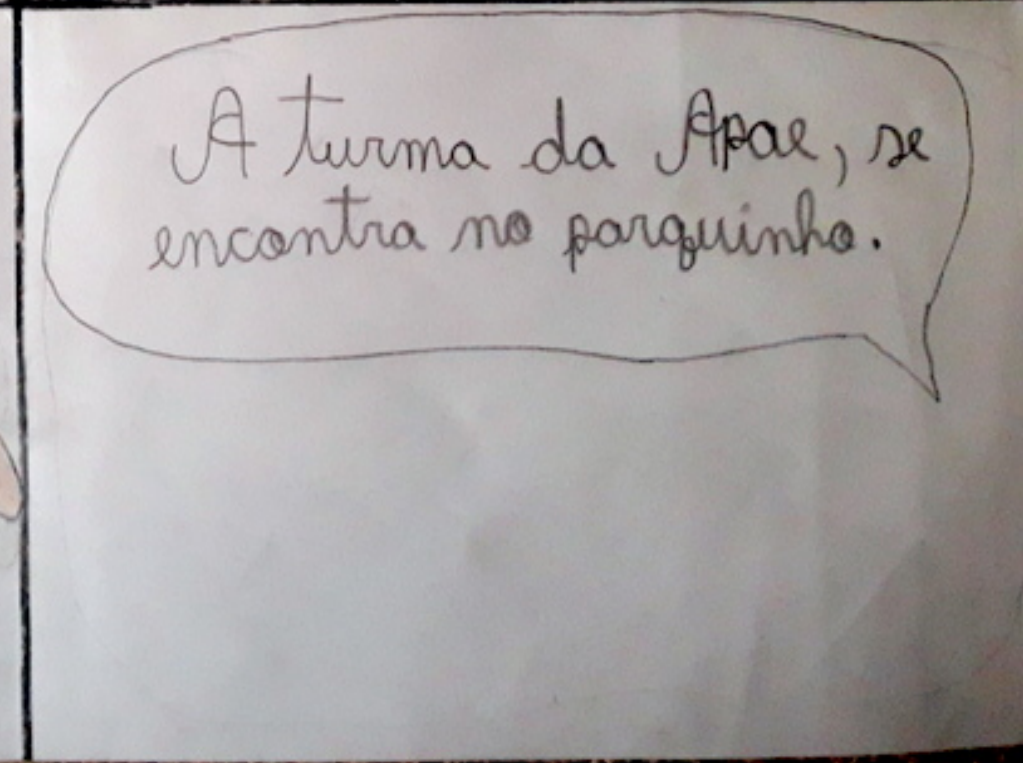 A turma da Apae, se
encontra no parquinho.